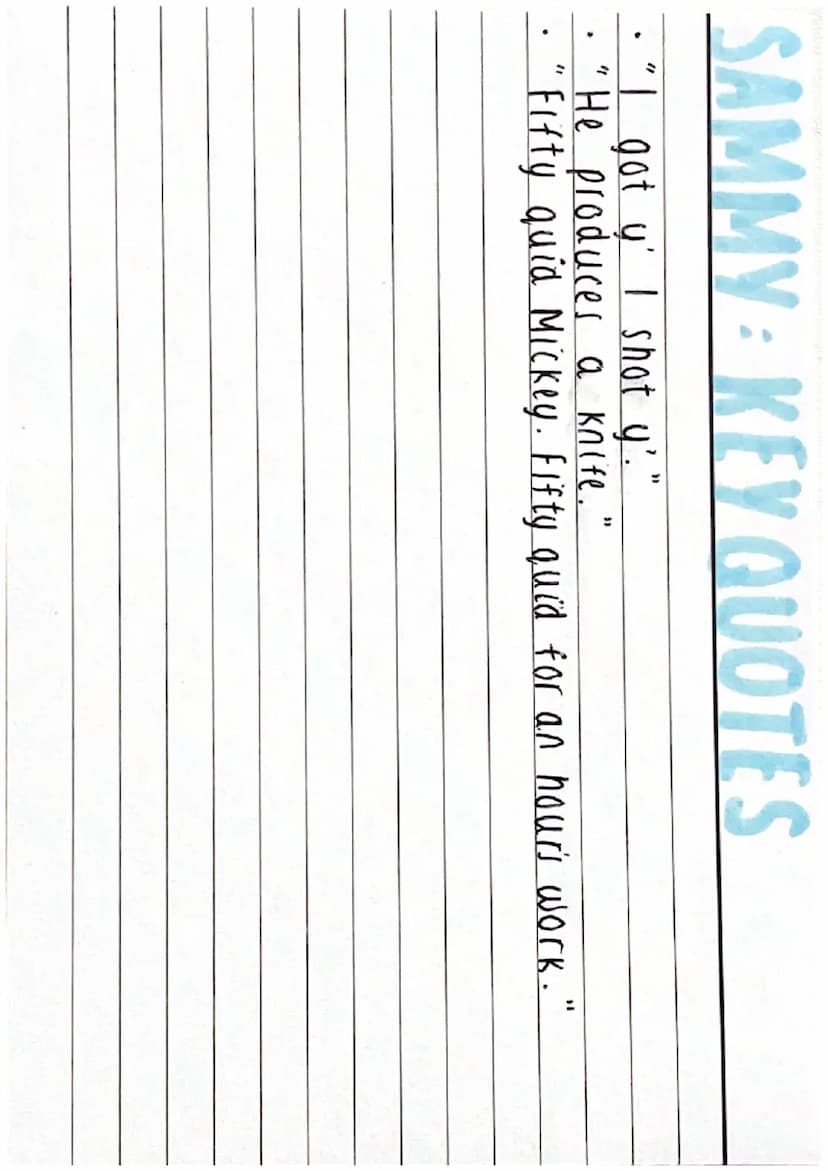 SAMMY: KEY QUOTES
• "I got y' I shot y'."
• "He produces a knife."
• "Fifty quid Mickey. Fifty quid for an hour's work."